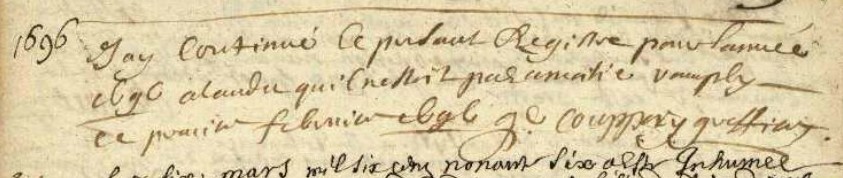 1696 Jay Continué Ce present Registre pour lannée
1696 atandu quil nestoit pas a moitié remply
Ce premier febvrier 1696 Couppery greffier.
mars mil six cens nonant six a esté Inhumee